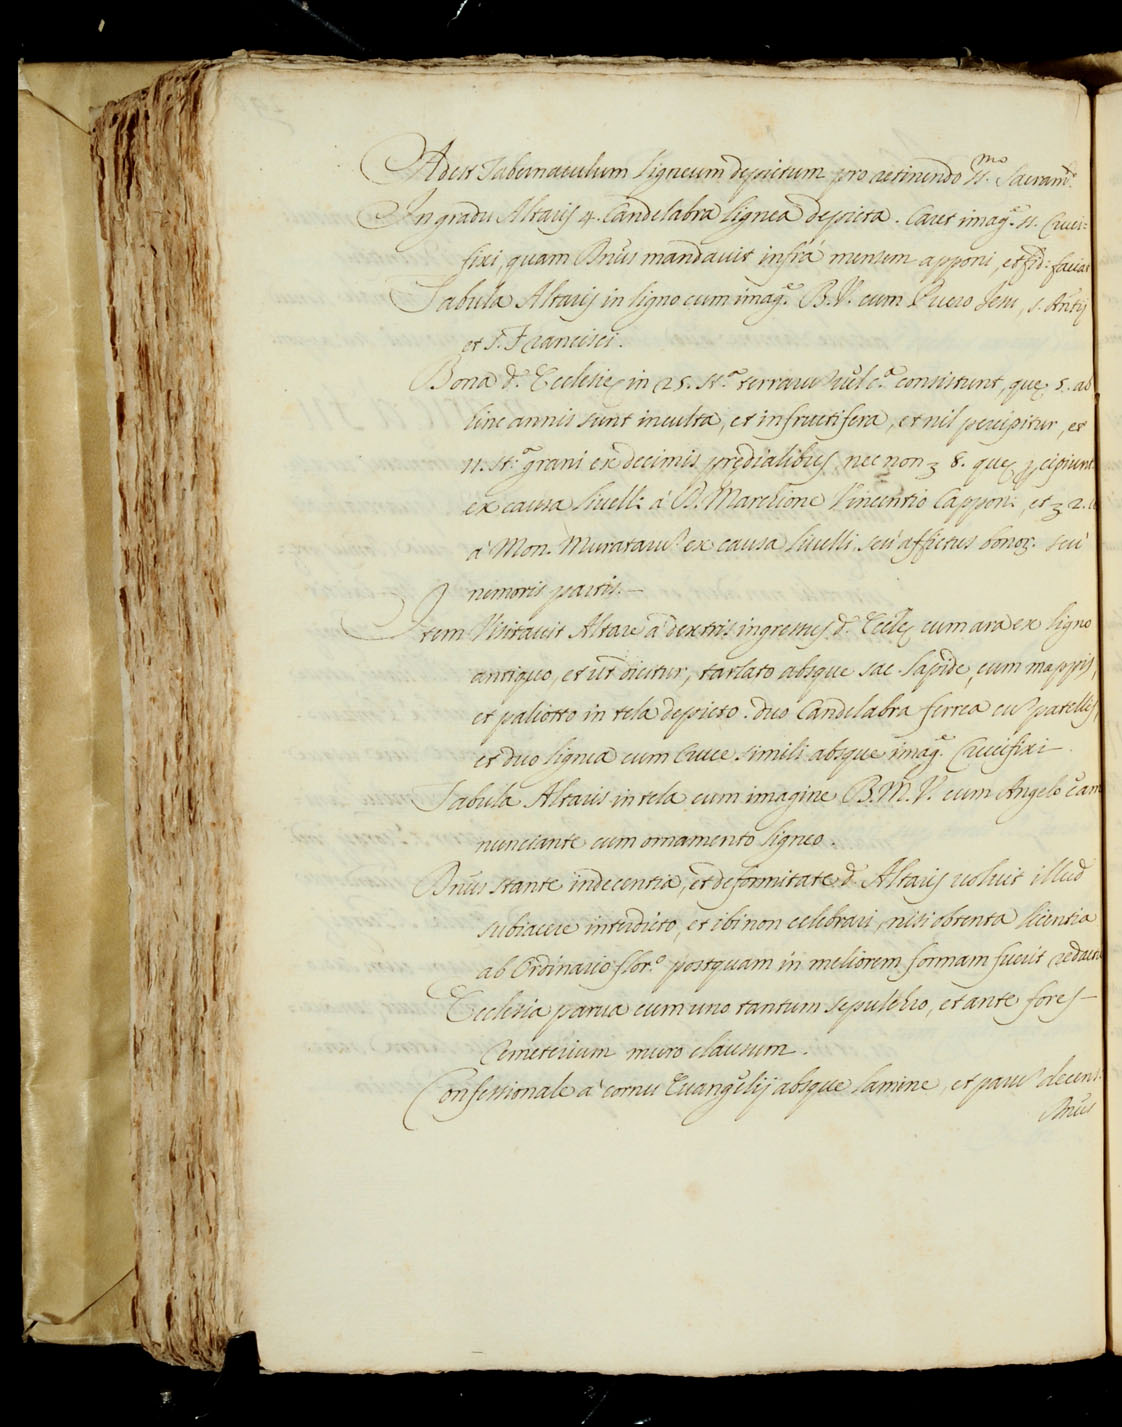 Adest Tabernaculum ligneum depictum pro retinendo SS.mo Sacram.to
In gradu Altaris 4. Candelabra lignea depicta. Caret imag.e SS. Cruci=
fixi, quam Dnus mandavit infrà mensem apponi, et fid: faciat
Tabula Altaris in ligno cum imag.e B.V. cum Puero Iesu, S. Antij
et S. Francisci.
Bona d.e Ecclesię in 25. st.a terraru consistunt, quę 5. ab
hinc annis sunt inculta, et infructifera, et nil percipitur, et
11. st.a grani ex decimis prędialibus, nec non 8. quę pcipiunt.
ex causa livelli à D. Marchione Vincentio Capponi, et 2.
à Mon. Murataru ex causa livelli, seù affictus bonor. seù
nemoris partis.—
Item Visitavit Altare à dextris ingressus d.e Ecclę cum ara ex ligno
antiquo, et ut dicitur, tarlato absque sac. lapide, cum mappis,
et paliotto in tela depicto. duo Candelabra ferrea cu patellis,
et duo lignea cum Cruce simili absque imag.e Crucifixi.
Tabula Altaris in tela cum imagine B.M.V. cum Angelo eam
nunciante cum ornamento ligneo.
Dnus stante indecentia, et deformitate d. Altaris voluit illud
subiacere interdicto, et ibi non celebrari, nisi obtenta licentia
ab Ordinario flor.o postquam in meliorem formam fuerit redact
Ecclesia parva cum uno tantum sepulchro, et ante fores—
Cemeterium muro clausum.
Confessionale à cornu Evangelij absque lamine, et paru decens.
Dnus